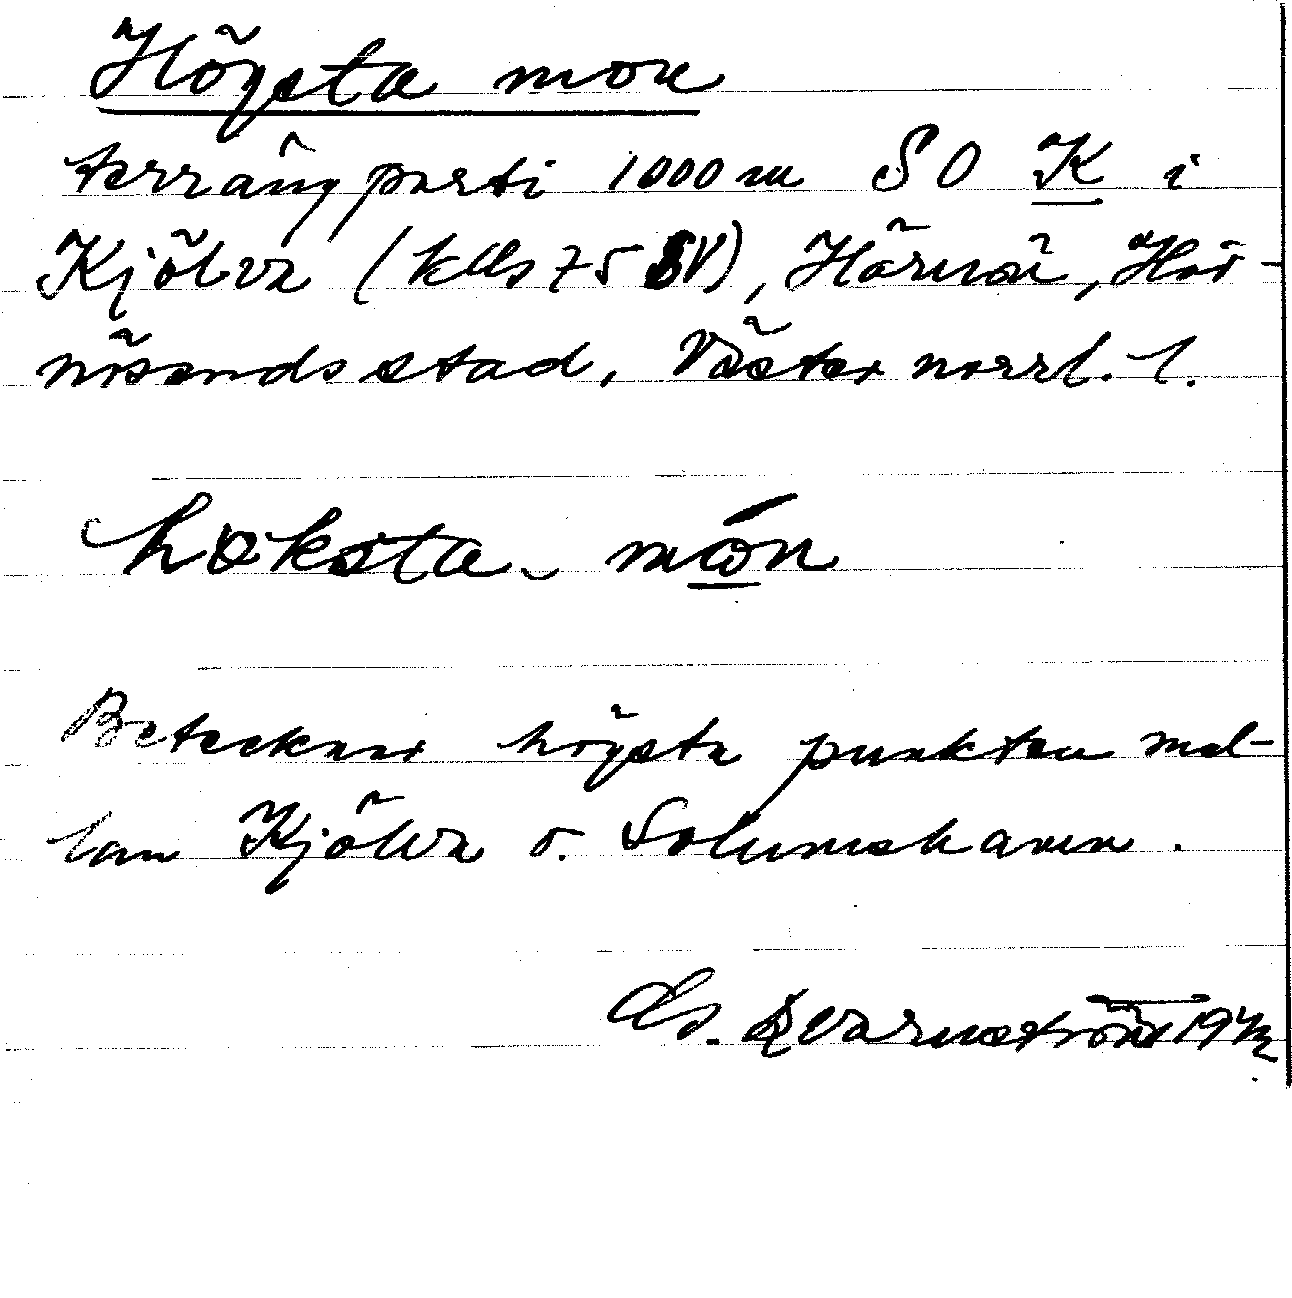 Högsta mon
terrängparti 1000 m SO K i
Kjölva (kbl 75 SV), Härnön, Här-
nösands stad, Västernorrl. l.
høksta món
Betecknar högsta punkten mel-
lan Kjölva o. Solumshamn.
Qvarnström 19